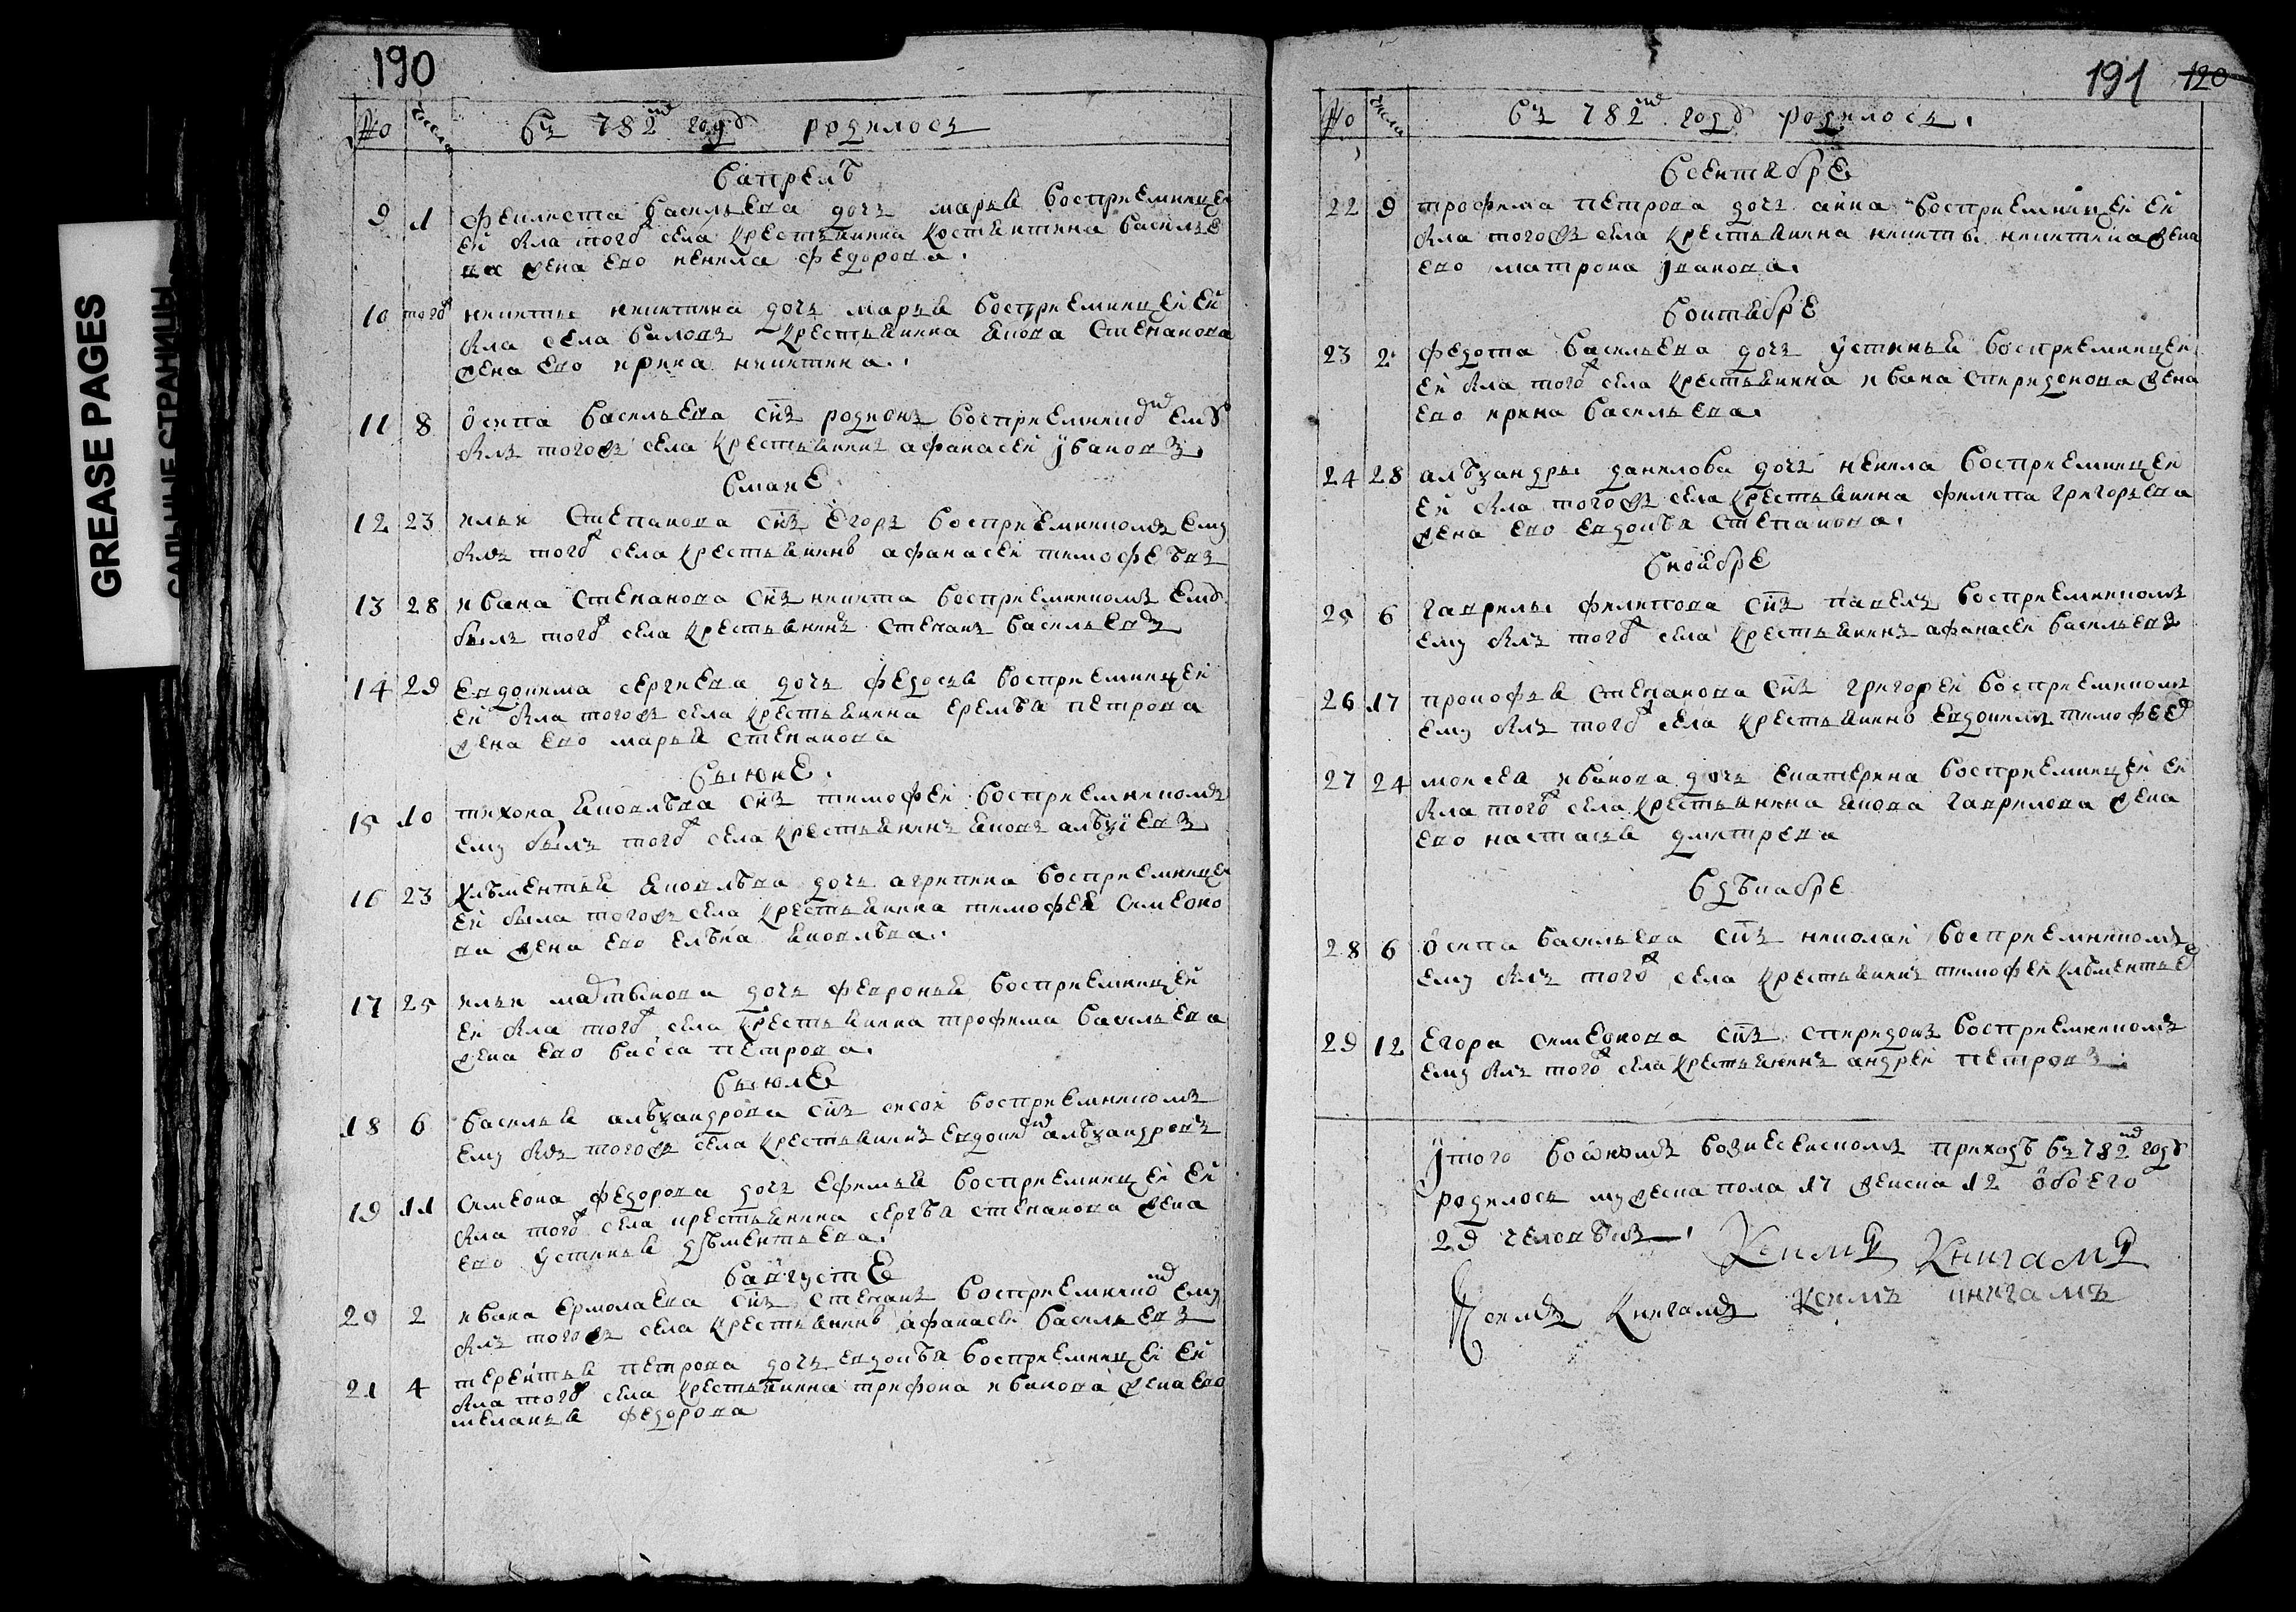 190
№ числа въ 782м году родилось
вапрелѣ
9 1 Феклиста васильева дочь марья восприемницеи
еи была того села крестьянина костянтина василье
ва жена ево ненила федорова.
10 того никиты никитина дочь марья восприемницеи еи
была села крестьянина якова степанова
жена ево ирина никитина.
11 8 осипа васильева снъ родионъ восприемникомъ ему
былъ тогожъ села крестьянинъ афанасеи ивановъ
вмаие
12 23 ильи степанова снъ егоръ восприемникомъ ему
былъ тогожъ села крестьянинъ афанасеи тимофѣевъ
13 28 ивана степанова снъ никита восприемникомъ ему
былъ тогожъ села крестьянинъ степанъ васильевъ
14 29 евдокима сергиева дочь федосья восприемницеи
еи была тогожъ села крестьянина еремѣя петрова
жена ево марья степанова
выюне.
15 10 тихона яковлѣва снъ тимофеи восприемникомъ
ему былъ тогожъ села крестьянинъ яковъ алѣѯiевъ
16 23 клѣментья яковлѣва дочь агрипина восприемницеи
еи была тогожъ села крестьянина тимофея симеоно
ва жена ево елѣна яковлѣва.
17 25 ильи дочь феврония восприемницеи
еи была тогожъ села крестьянина трофима васильева
жена ево васса петрова.
выюле
18 6 василья алѣѯандрова снъ сисои восприемникомъ
ему былъ тогожъ села крестьянинъ евдокимъ алѣѯандровъ
19 11 симеона федорова дочь ефимья восприемницеи еи
была тогожъ села крестьянина сергѣя степанова жена
ево устинья
вавгусте
20 2 ивана ермолаева снъ степанъ восприемникомъ ему
былъ тогожъ села крестьянинъ афанасеи васильевъ
21 4 терентья петрова дочь евдокѣя восприемницеи еи
была тогожъ села крестьянина трифона иванова жена ево
меланья федорова
191 120
№ числа въ 782м году родилось.
всентябре
22 9 трофима петрова дочь анна восприемницеи еи
была тогожъ села крестьянина никиты никитина жена
ево матрона иванова.
воктябре
23 2 федота васильева дочь устинья восприемницеи
еи была тогожъ села крестьянина ивана спиридонова жена
ево ирина васильева.
24 28 алѣѯандры данилова дочь ненила восприемницеи
еи была тогожъ села крестьянина филипа григорьева
жена ево евдокѣя степанова.
вноябре
25 6 гаврилы филипова снъ павелъ восприемникомъ
ему былъ тогожъ села крестьянинъ афанасеи васильевъ
26 17 прокофья степанова снъ григореи восприемникомъ
ему былъ тогожъ села крестьянинъ евдокимъ тимофеевъ
27 24 моисея иванова дочь екатерина восприемницеи еи
была тогожъ села крестьянина якова гаврилова жена
ево настасья дмитрева
вдѣкабре
28 6 осипа васильева снъ николаи восприемникомъ
ему былъ тогожъ села крестьянинъ тимофеи клѣментьевъ
29 12 егора симеонова снъ спиридонъ восприемникомъ
ему былъ тогожъ села крестьянинъ андреи петровъ.
итого вознесенскомъ приходѣ въ 782м году
родилось мужеска пола 17 женска 12 обоего
29 человѣкъ. Ксимъ Книгамъ
Ксимъ Книгамъ Ксимъ книгамъ
GREASE PAGES
САЛЬНЫЕ СТРАНИЦЫ